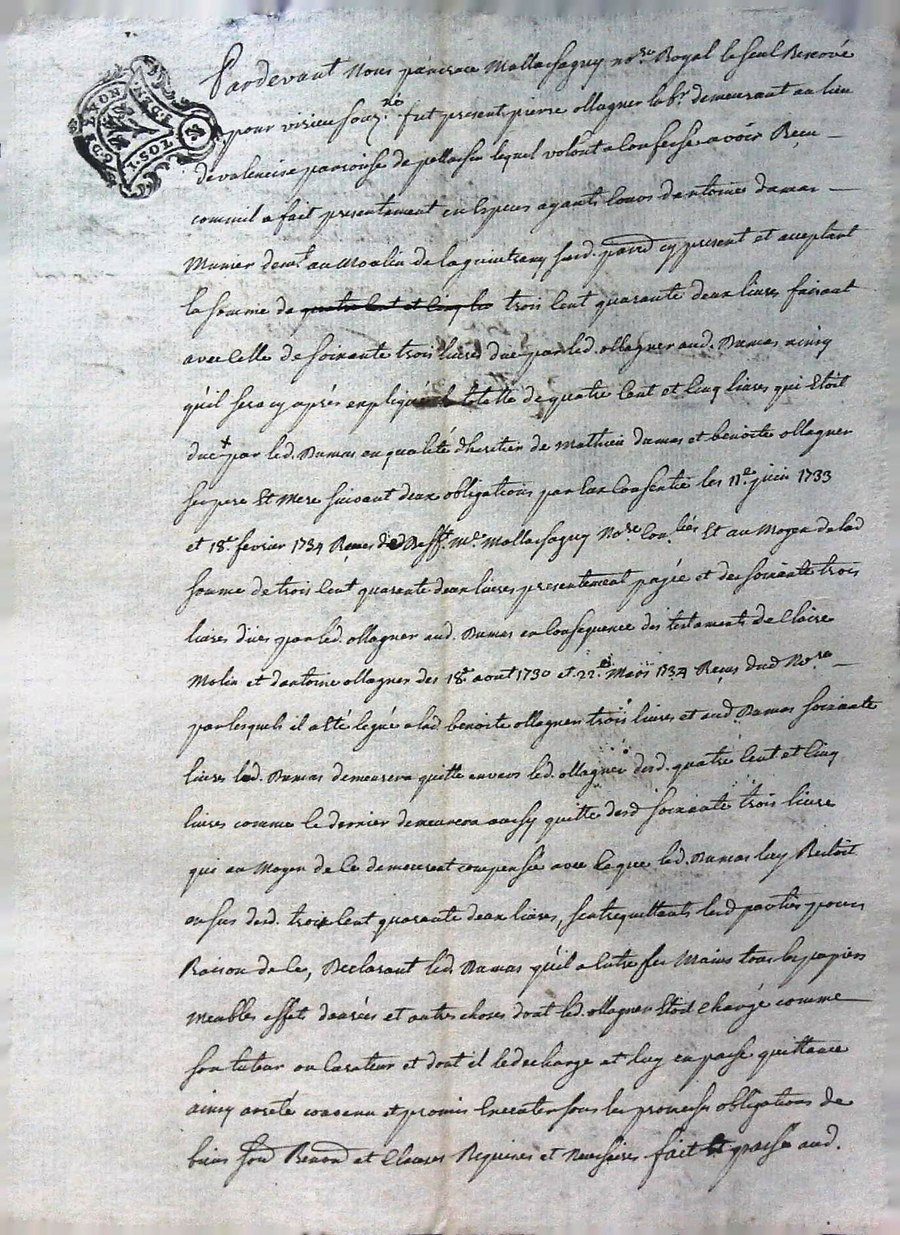 G. LYON
NEC.
1. SOL
Pardevant Nous pancrace Mallachaguy no.re Royal le seul Renové
pour virieu souz.né fut present pierre ollagner lab.r demeurant au lieu
de valencise parroisse de pellussin lequel volont a confessé avoir Reçu
comme il a fait presentement en Especes ayants cours d'antoine dumas
Munier dem.t au Moulin de la guintrany surd. paroisse cy present et acceptant
la somme de quatre cent et cinq liv trois cent quarante deux livres faisant
avec celle de soixante trois livres due par led. ollagner aud. Dumas ainsy
qu'il sera cy après expliqué la totalle de quatre cent et cinq livres qui Etoit
due par led. Dumas en qualité d'heritier de Mathieu dumas et benoite ollagner
ses pere Et Mere suivant deux obligations par Eux consentie les 11.e juin 1733
et 18.e fevrier 1734 Reçues M.e Mallachaguy No.re Et au Moyen de lad
somme de trois cent quarante deux livres presentement payée et des soixante trois
livres dües par led. ollagner aud. Dumas en consequence des testaments de Claire
Molin et d'antoine ollagner des 18.e aout 1730 et 22.e Mars 1734 Reçus dud No.re
par lesquels il a Eté legué a lad benoite ollagner trois livres et aud. Dumas soixante
livres led. Dumas demeurera quitte envers led. ollagner desd. quatre cent et cinq
livres comme le dernier demeurera aussy quitte desd soixante trois livres
qui au Moyen de ce demeurent compensée avec ce que led. Dumas luy Restoit
en sus desd. trois cent quarante deux livres, s'entrequittants lesd parties pour
Raison de ce, Declarant led. Dumas qu'il a Entre ses Mains tous les papiers
Meubles effets danrées et autres choses dont led. ollagner Etoit Chargé comme
son tuteur ou Curateur et dont il le decharge et luy en passe quittance
ainsy arreté convenu et promis Executer sous les promesses obligations de
biens Renond et Clauses Requises et Necessaires fait Et passé aud.